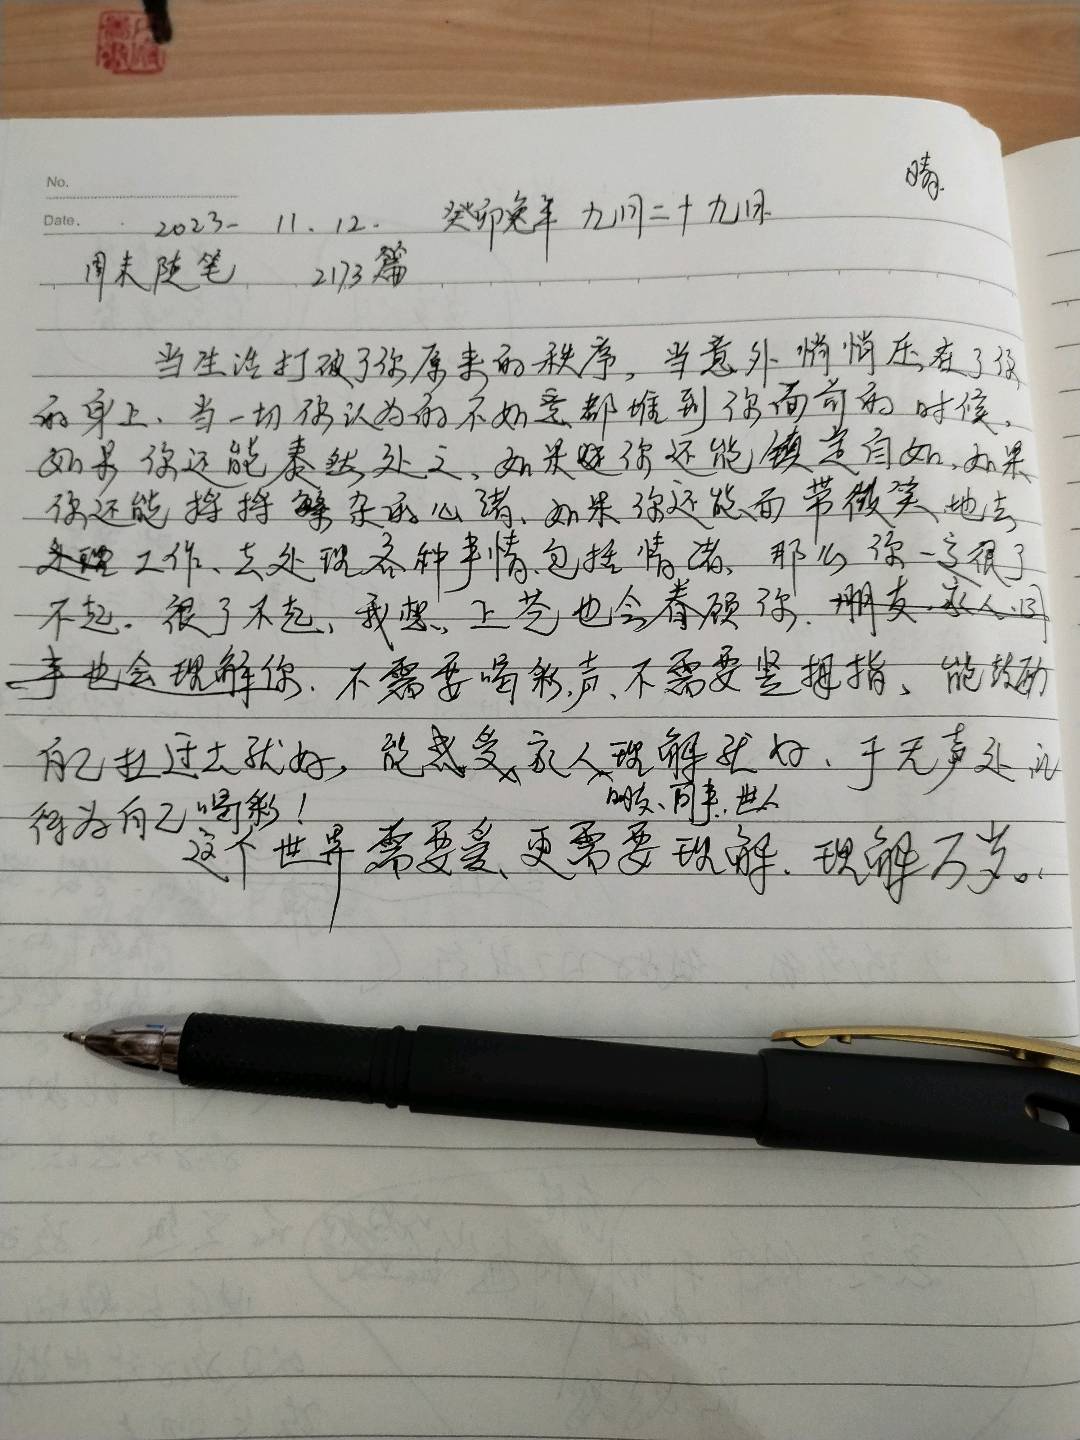 晴
No.
Date. 2023- 11.12. 癸卯兔年 九月二十九日
周末随笔 2173篇
当生活打破了你原来的秩序，当意外悄悄压在了你
的身上、当一切你认为的不如意都堆到你面前的时候，
如果你还能泰然处之、如果你还能镇定自如、如果
你还能捋捋繁杂的心绪、如果你还能面带微笑地去
处理工作、去处理各种事情、包括情绪、那么你一定很了
不起。很了不起、我想，上苍也会眷顾你. 朋友、家人、同
事也会理解你. 不需要喝彩声、不需要竖拇指、能鼓励
自己扛过去就好，能感受家人理解就好、于无声处记
朋友、同事、世人
得为自己喝彩！
这个世界需要爱、更需要理解. 理解万岁。